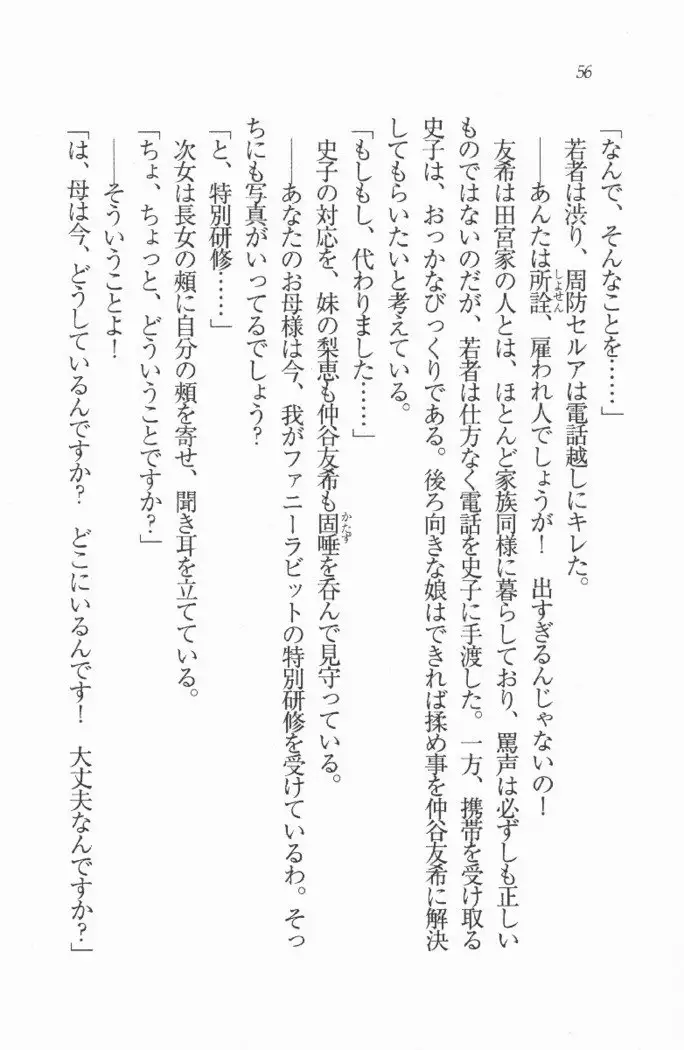 56
「なんで、そんなことを……」
若者は渋り、周防セルアは電話越しにキレた。
――あんたは所詮、雇われ人でしょうが！　出すぎるんじゃないの！
しょせん
友希は田宮家の人とは、ほとんど家族同様に暮らしており、罵声は必ずしも正しい
ものではないのだが、若者は仕方なく電話を史子に手渡した。一方、携帯を受け取る
史子は、おっかなびっくりである。後ろ向きな娘はできれば揉め事を仲谷友希に解決
してもらいたいと考えている。
「もしもし、代わりました……」
史子の対応を、妹の梨恵も仲谷友希も固唾を呑んで見守っている。
かたず
――あなたのお母様は今、我がファニーラビットの特別研修を受けているわ。そっ
ちにも写真がいってるでしょう？
「と、特別研修……」
次女は長女の頰に自分の頰を寄せ、聞き耳を立てている。
「ちょ、ちょっと、どういうことですか？」
――そういうことよ！
「は、母は今、どうしているんですか？　どこにいるんです！　大丈夫なんですか？」